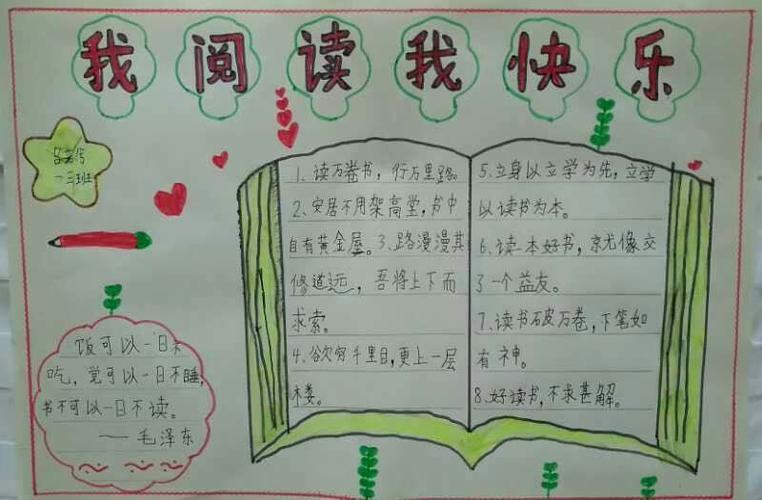 我阅读我快乐
一三班
1、读万卷书，行万里路。
2、安居不用架高堂，书中
自有黄金屋。3、路漫漫其
修道远，吾将上下而
求索。
4、欲穷千里目，更上一层
楼。
5、立身以立学为先，立学
以读书为本。
6、读一本好书，就像交
了一个益友。
7、读书破万卷，下笔如
有神。
8、好读书，不求甚解。
饭可以一日不
吃，觉可以一日不睡，
书不可以一日不读。
——毛泽东